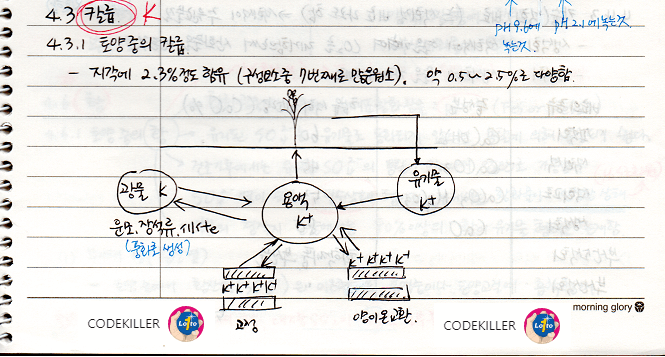 4.3 칼륨 K
pH9.6에 녹는것.
pH2.1에 녹는것.
4.3.1 토양중의 칼륨
- 지각에 2.3% 정도 함유 (구성원소중 7번째로 많은원소). 약 0.5~2.5%로 다양함.
광물 K
용액 K+
유기물 K+
운모, 장석류,
(풍화로 생성)
K+ K+ K+ K+
K+ K+ K+ K+
고정
양이온교환.
morning glory
CODEKILLER
Lotto
CODEKILLER
Lotto